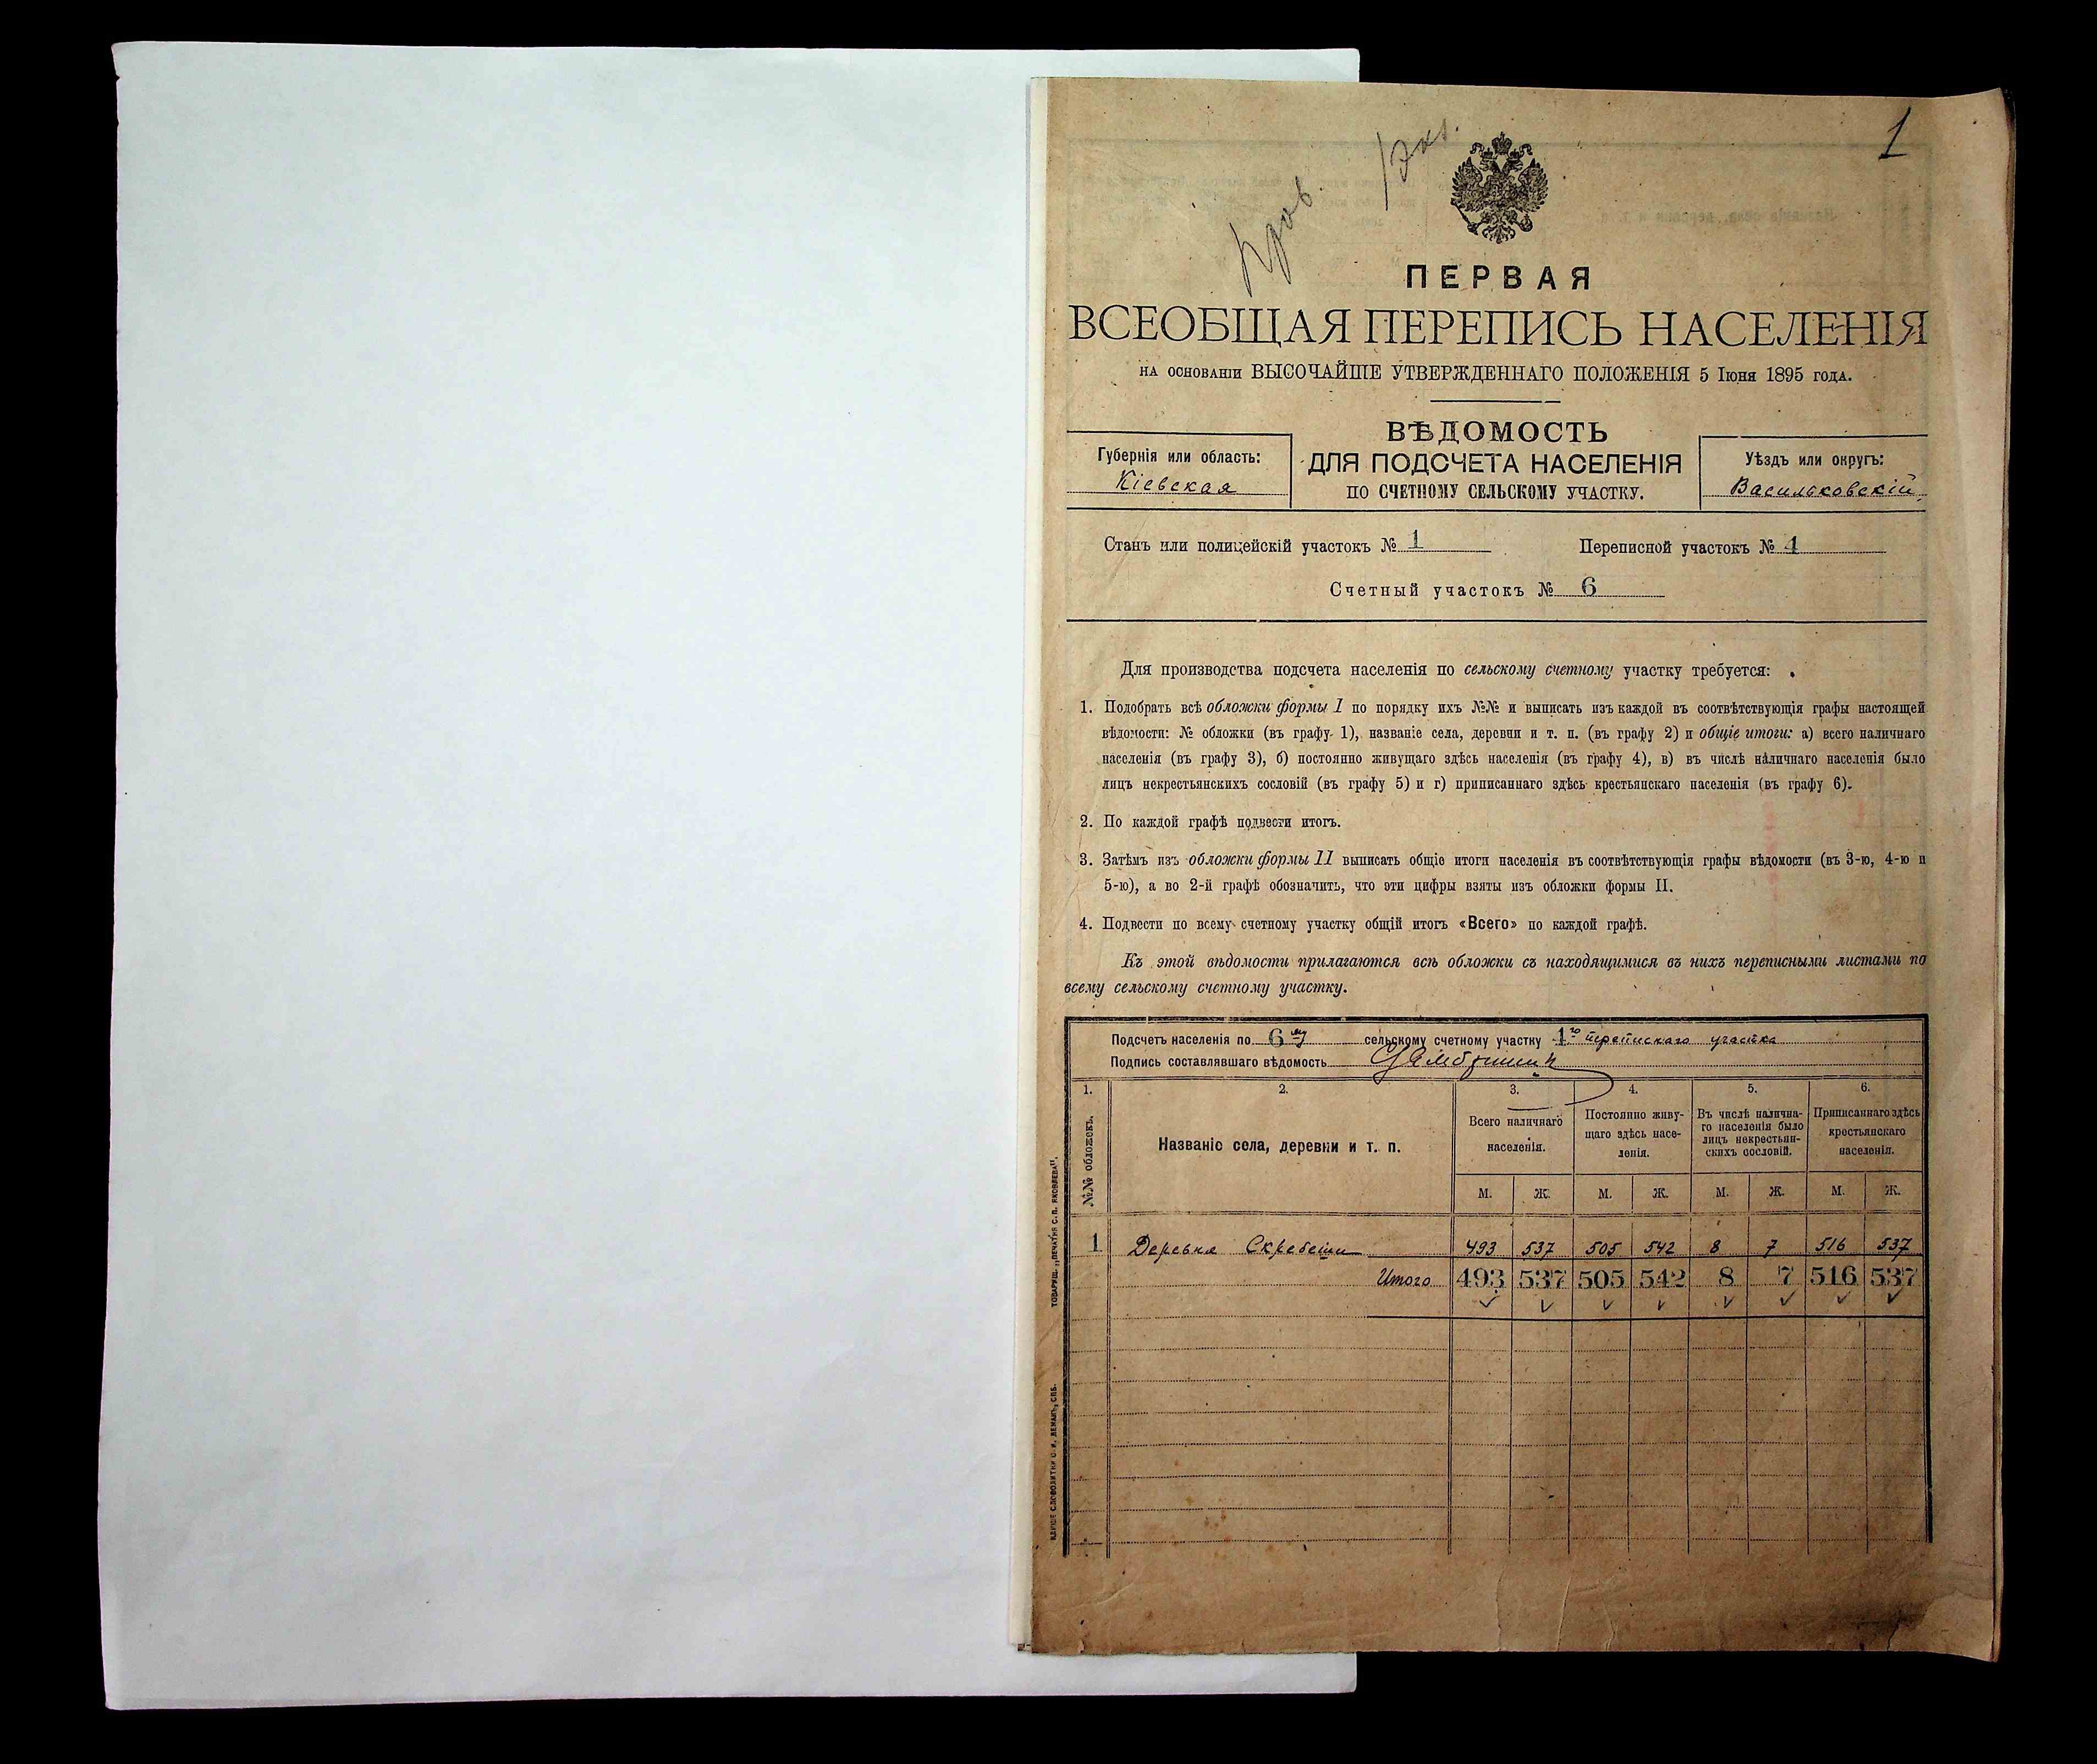 1
Пров. 1 экз.
ПЕРВАЯ
ВСЕОБЩАЯ ПЕРЕПИСЬ НАСЕЛЕНІЯ
НА ОСНОВАНІИ ВЫСОЧАЙШЕ УТВЕРЖДЕННАГО ПОЛОЖЕНІЯ 5 Іюня 1895 ГОДА.
ВѢДОМОСТЬ
ДЛЯ ПОДСЧЕТА НАСЕЛЕНІЯ
ПО СЧЕТНОМУ СЕЛЬСКОМУ УЧАСТКУ.
Губернія или область:
Кіевская
Уѣздъ или округъ:
Васильковскій
Станъ или полицейскій участокъ № 1 Переписной участокъ № 1
Счетный участокъ № 6
Для производства подсчета населенія по сельскому счетному участку требуется:
1. Подобрать всѣ обложки формы I по порядку ихъ №№ и выписать изъ каждой въ соотвѣтствующія графы настоящей
вѣдомости: № обложки (въ графу 1), названіе села, деревни и т. п. (въ графу 2) и общіе итоги: а) всего наличнаго
населенія (въ графу 3), б) постоянно живущаго здѣсь населенія (въ графу 4), в) въ числѣ наличнаго населенія было
лицъ некрестьянскихъ сословій (въ графу 5) и г) приписаннаго здѣсь крестьянскаго населенія (въ графу 6).
2. По каждой графѣ подвести итогъ.
3. Затѣмъ изъ обложки формы II выписать общіе итоги населенія въ соотвѣтствующія графы вѣдомости (въ 3-ю, 4-ю и
5-ю), а во 2-й графѣ обозначить, что эти цифры взяты изъ обложки формы II.
4. Подвести по всему счетному участку общій итогъ «Всего» по каждой графѣ.
Къ этой вѣдомости прилагаются всѣ обложки съ находящимися въ нихъ переписными листами по
всему сельскому счетному участку.
Подсчетъ населенія по 6му сельскому счетному участку 1го переписнаго участка
Подпись составлявшаго вѣдомость
1. 2. 3. 4. 5. 6.
№№ обложекъ.
Названіе села, деревни и т. п.
Всего наличнаго
населенія.
Постоянно живу-
щаго здѣсь насе-
ленія.
Въ числѣ налична-
го населенія было
лицъ некрестьян-
скихъ сословій.
Приписаннаго здѣсь
крестьянскаго
населенія.
М. Ж. М. Ж. М. Ж. М. Ж.
1 Деревня Скребеши 493 537 505 542 8 7 516 537
Итого 493 537 505 542 8 7 516 537
ТОВАРИЩ. „ПЕЧАТНЯ С. П. ЯКОВЛЕВА“.
КЛИШЕ СЛОВОЛИТНИ О. И. ЛЕМАНЪ, СПБ.